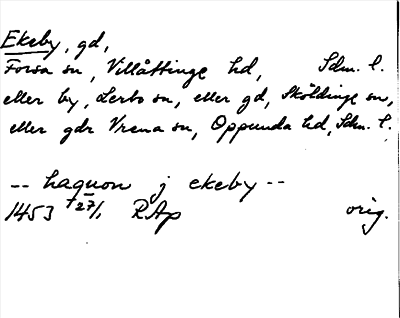 Ekeby, gd,
Forsa sn, Villåttinge hd, Sdm. l.
eller by, Lerbo sn, eller gd, Sköldinge sn,
eller gdr Vrena sn, Oppunda hd, Sdm. l.
-- haquon j ekeby --
1453 27/1 RAp orig.